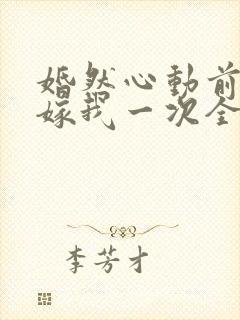 婚然心動前
嫁我一次全
李芳才